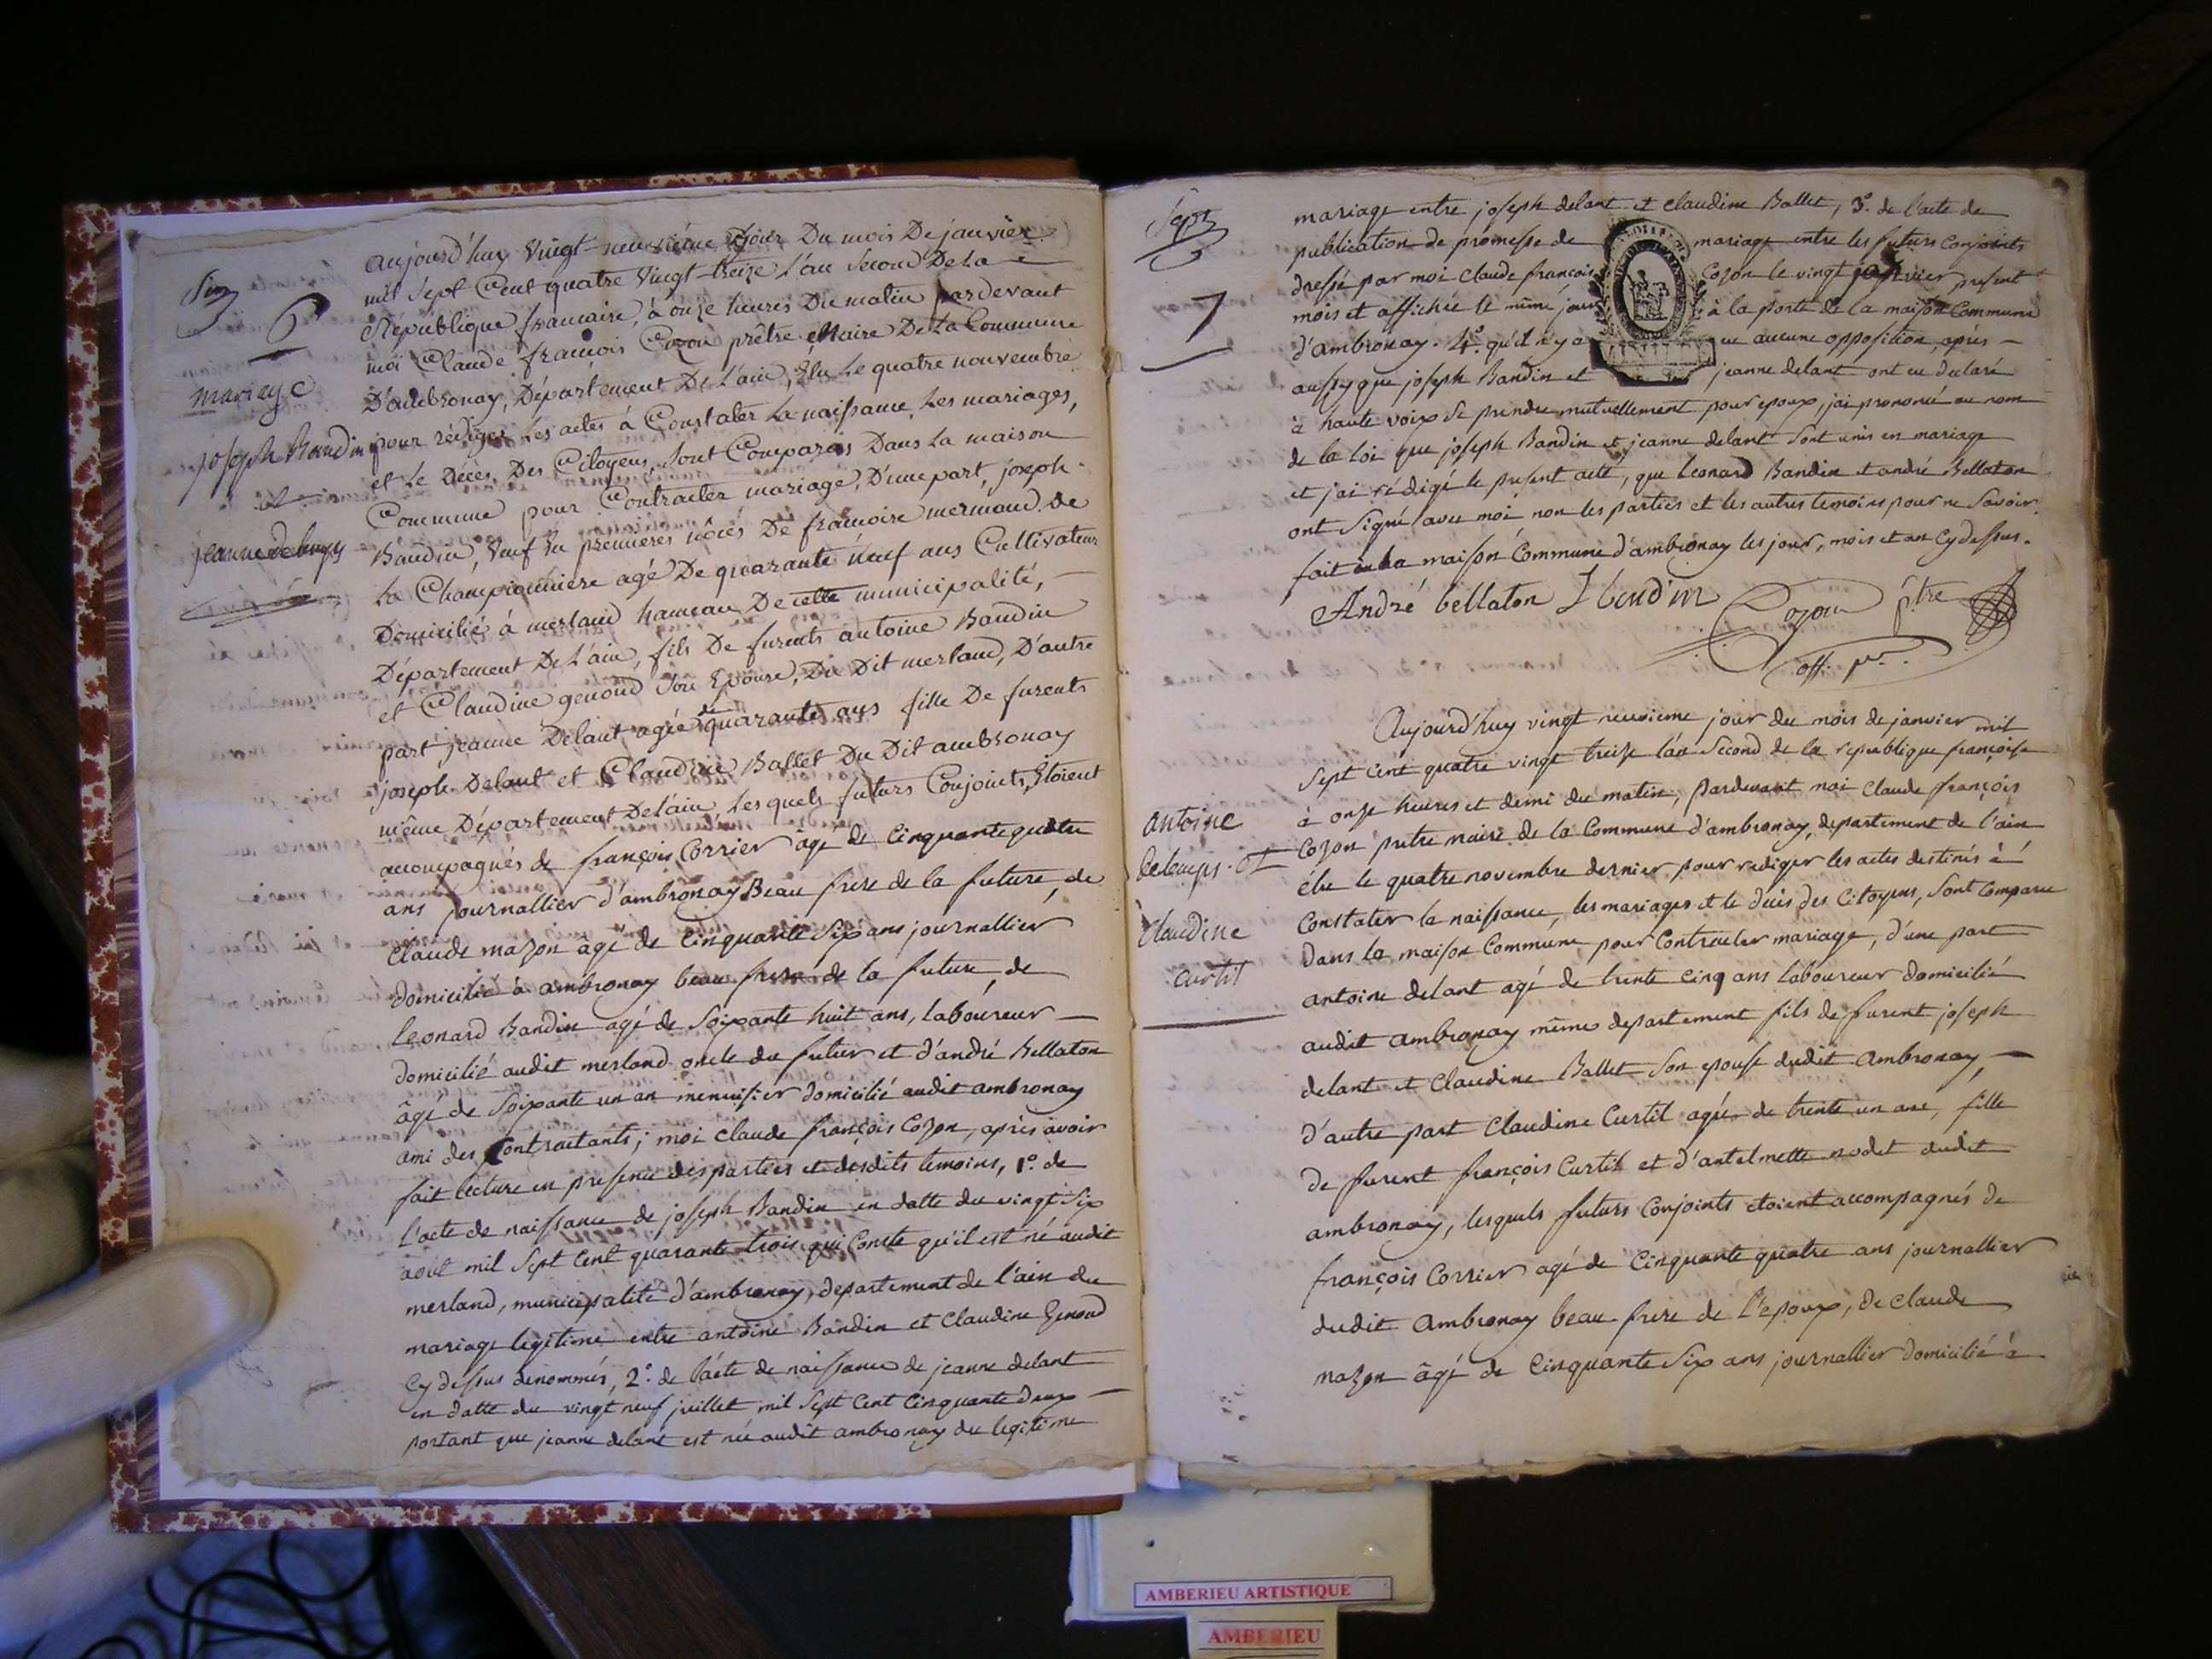 Six
6
mariage
joseph Baudin
et
jeanne
aujourd'huy vingt neuvième jour Du mois De janvier
mil sept Cent quatre vingt treize l'an second De la
République francaise, à onze heures Du matin pardevant
moi Claude françois Cozon prêtre Maire De La Commune
D'ambronay, Département De L'ain, élu Le quatre nouvembre
pour rédiger Les actes à Constater La naissance, Les mariages,
et Le Décès Des Citoyens, sont Comparus Dans La maison
Commune pour Contracter mariage, D'une part, joseph
Baudin, veuf en premieres nôces De francoise mermand de
La Championniere agé De quarante neuf ans Cultivateur
Domicilié à merland hameau De cette municipalité,
Département De L'ain, fils De furents antoine Baudin
et Claudine genoud son Epouse, Du Dit merland, D'autre
part jeanne Delant agée de quarante ans fille De furents
joseph Delant et Claudine Ballet Du Dit ambronay
même Département De L'ain, Les quels futurs Conjoints Etoient
accompagnés de françois Corrier âgé de Cinquante quatre
ans journallier d'ambronay Beau frere de la future, de
Claude mazon age de Cinquante Six ans journallier
domicilié à ambronay beau frere de la future, de
Leonard Baudin agé de Soixante huit ans, laboureur
domicilié audit merland oncle du futur et d'andré Bellaton
âgé de Soixante un an menuisier domicilié audit ambronay
ami des Contractants; moi claude françois Cozon, après avoir
fait lecture en presence des parties et desdits temoins, 1°. de
l'acte de naissance de joseph Baudin en datte du vingt Six
août mil Sept Cent quarante trois qui Conste qu'il est né audit
merland, municipalité d'ambronay, departement de l'ain du
mariage legitime entre antoine Baudin et Claudine Genoud
Cy dessus denommés, 2°. de l'acte de naissance de jeanne delant
en datte du vingt neuf juillet mil Sept Cent Cinquante deux
portant que jeanne delant est née audit ambronay du legitime
Sept
7
mariage entre joseph delant et claudine Ballet, 3°. de l'acte de
publication de promesse de mariage entre les futurs Conjoints
dressé par moi Claude françois Cozon le vingt janvier present
mois et affichée le même jour à la porte de la maison Commune
d'ambronay. 4°. qu'il n'y a eu aucune opposition, après
aussy que joseph Baudin et jeanne delant ont eu declaré
à haute voix Se prendre mutuellement pour epoux, j'ai prononcé au nom
de la loi que joseph Baudin et jeanne delant Sont unis en mariage
et j'ai rédigé le present acte, que Leonard Baudin et andré Bellaton
ont Signé avec moi non les parties et les autres temoins pour ne Savoir.
fait en la maison Commune d'ambronay les jour, mois et an Cy dessus.
André bellaton L baudin Cozon ptre
off. pu.
antoine
delemps. et
Claudine
curtil
Aujourd'huy vingt neuvieme jour du mois de janvier mil
Sept Cent quatre vingt treize l'an Second de la republique françoise
à onze heures et demi du matin, pardevant moi Claude françois
Cozon prêtre maire de la Commune d'ambronay, departement de l'ain
élu le quatre novembre dernier pour rediger les actes destinés à
Constater la naissance, les mariages et le décès des Citoyens, Sont Comparu
Dans la maison Commune pour Contracter mariage, d'une part
antoine delant agé de trente Cinq ans laboureur domicilié
audit ambronay même departement fils de furent joseph
delant et Claudine Ballet Son epouse dudit ambronay,
d'autre part Claudine Curtil agée de trente un ans, fille
de furent françois Curtil et d'antelmette nodet dudit
ambronay, lesquels futurs Conjoints etoient accompagnés de
françois Corrier agé de Cinquante quatre ans journallier
dudit ambronay beau frere de l'epoux, de claude
mazon âgé de Cinquante Six ans journallier domicilié à
AMBERIEU ARTISTIQUE
AMBERIEU